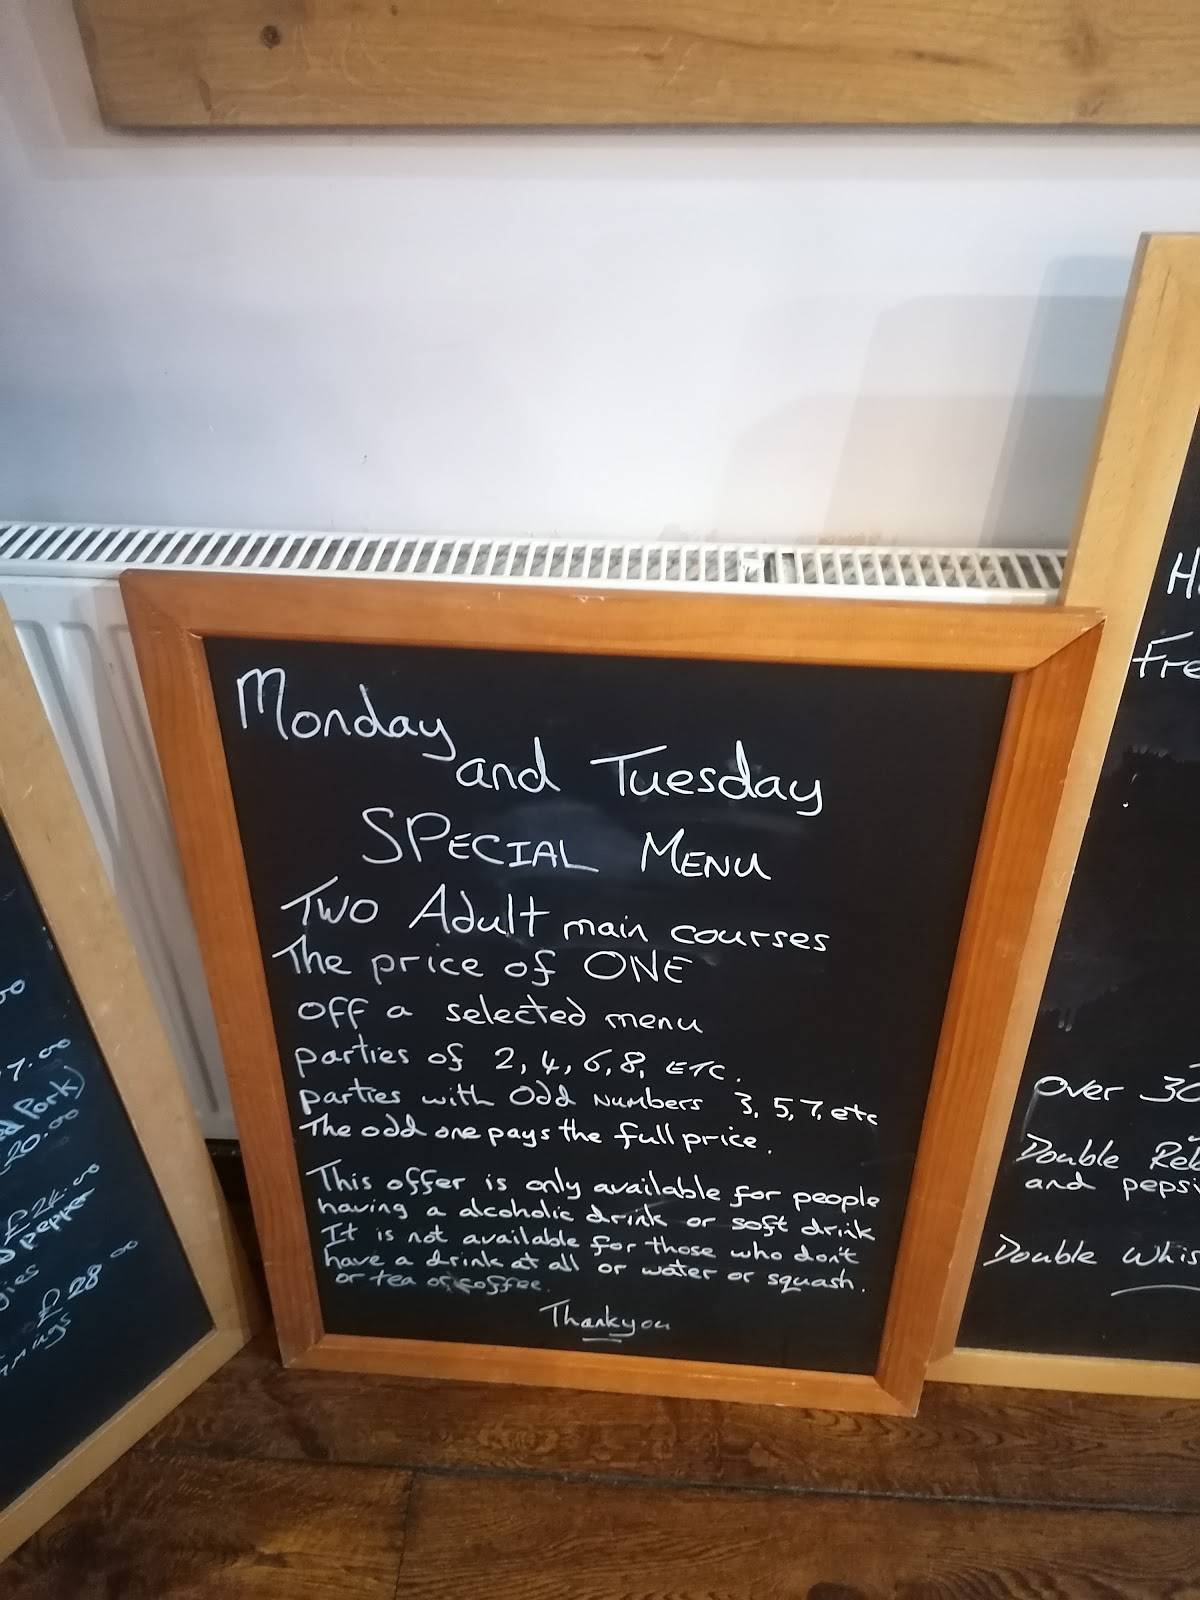 Monday
and Tuesday
SPECIAL MENU
Two Adult main courses
The price of ONE
off a selected menu
parties of 2, 4, 6, 8, ETC.
parties with Odd Numbers 3, 5, 7, etc
The odd one pays the full price.
This offer is only available for people
having a alcoholic drink or soft drink
It is not available for those who don't
have a drink at all or water or squash.
or tea or coffee.
Thankyou
7.00
Pork)
20.00
£24.00
pepper
£28.00
Fre
over 30
Double
and pepsi
Double Whis